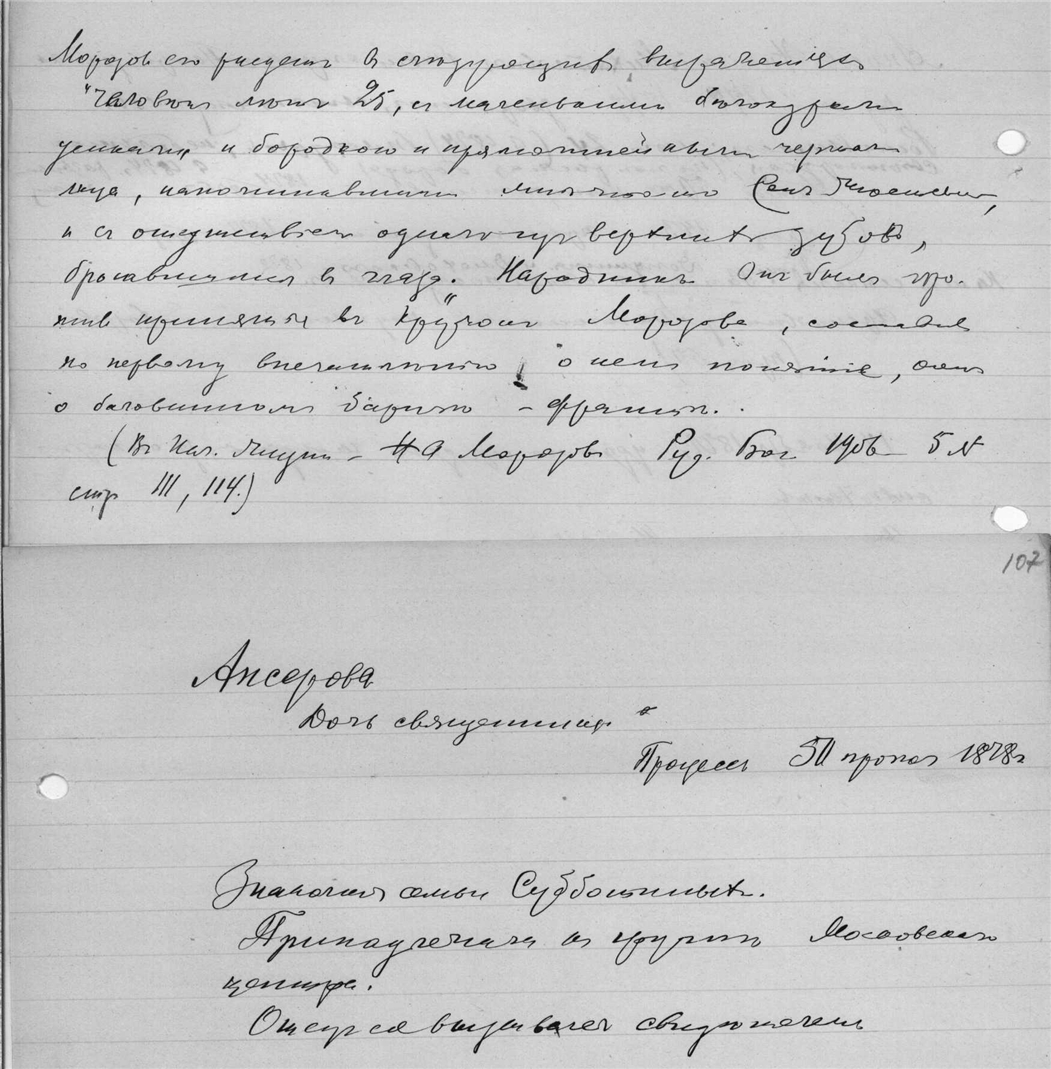 Морозов его рисует в следующих выражениях
"Человек лет 25, с маленькими белокурыми
усиками и бородкою и прямолинейными чертами
лица, напоминавшими мне Сен Жюста,
и с отсутствием одного из верхних зубов,
бросавшимся в глаза. Народник. Он был про-
тив принятия в кружок Морозова, составив
по первому впечатлению о нем понятие, как
о балованном барине - франте.
(В нач. жизни - Н А Морозов Рус. Бог. 1906 5 N
стр 111, 114.)
107
Аксерова
Дочь священника
Процесс 50 1878 г
Знакомая семьи Субботиных.
Принадлежала к кружку Московского
центра.